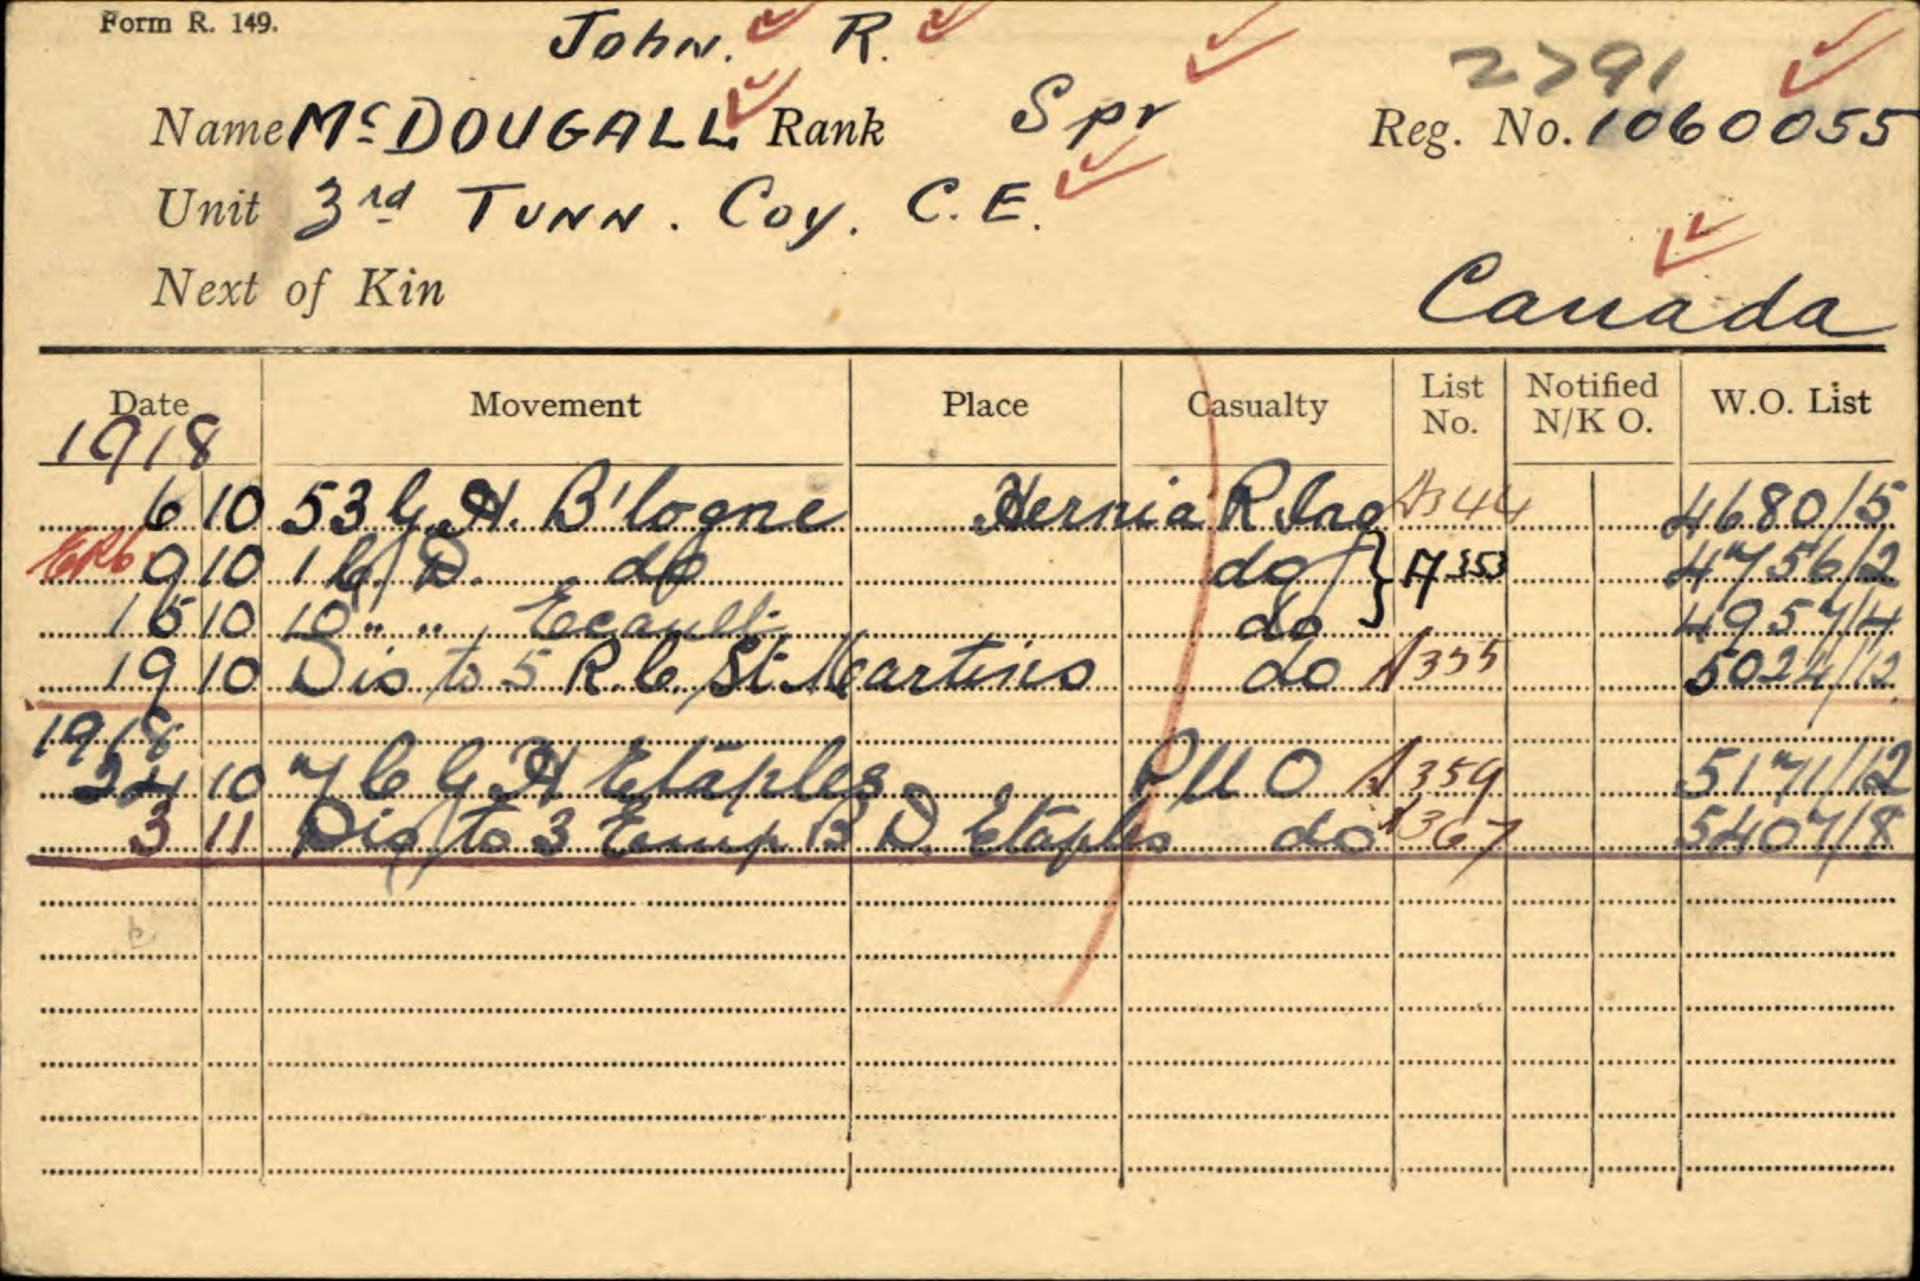 Form R. 149.
John. R.
2791
Name McDOUGALL Rank Spr Reg. No. 1060055
Unit 3rd TUNN. Coy. C.E.
Next of Kin
Canada
Date Movement Place Casualty List No. Notified N/K O. W.O. List
1918
6 10 53 G.H. B'logne Hernia R Ing A344 4680/5
9 10 1 C.D. do do } A353 4756/2
15 10 10 " " Ecault do 4957/4
19 10 Dis to 5 R.C. St Martins do A355 5024/12
1918
24 10 7 C G H Etaples P U O A359 5171/12
3 11 Dis to 3 Temp B D. Etaples do A367 5407/8